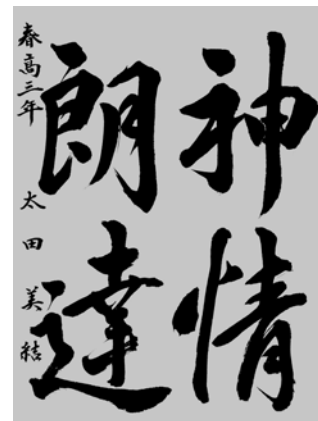 神情
朗達
春高三年 太田美結